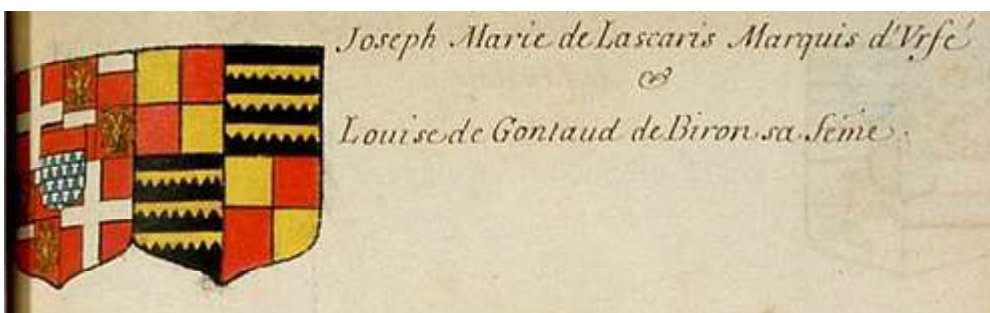 Joseph Marie de Lascaris Marquis d'Vrfé
&
Louise de Gontaud de Biron sa féme.